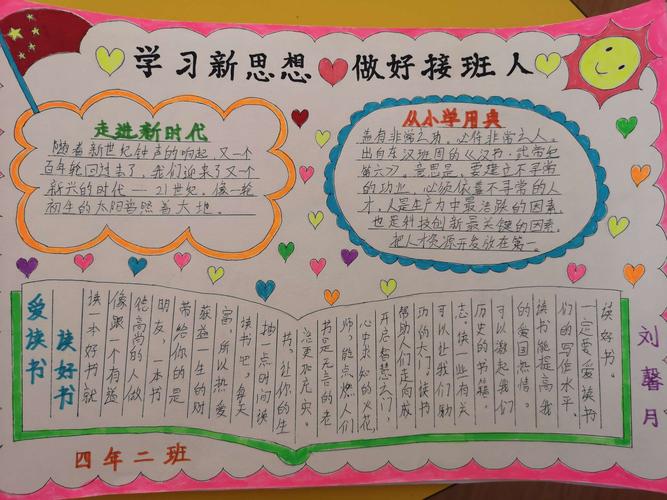 学习新思想 做好接班人
走进新时代
随着新世纪钟声的响起,又一个
百年轮回过去了,我们迎来了又一个
新兴的时代——21世纪,像一轮
初生的太阳普照着大地。
从小学用典
盖有非常之功,必待非常之人。
出自东汉班固的《汉书·武帝纪
第六》,意思是,要建立不寻常
的功业,必须依靠不寻常的人
才,人是生产力中最活跃的因素,
也是科技创新最关键的因素,
把人才资源开发放在第一。
爱读书
读好书
读一本好书就
像跟一个有益
德高尚的人做
朋友,一本书
带给你的是
获益一生的财
富。所以热爱
读书吧,每天
抽一点时间读
书,让你的生
活更加充实。
书是无言的老
师,能点燃人们
心中求知的火花,
开启智慧之门,
帮助人们走向成
功的大门。读书
可以让我们励
志。读一些有关
历史的书籍,
可以激起我们
的爱国热情。
读书能提高我
们的写作水平。
一定要爱读书
读好书。
刘馨月
四年二班